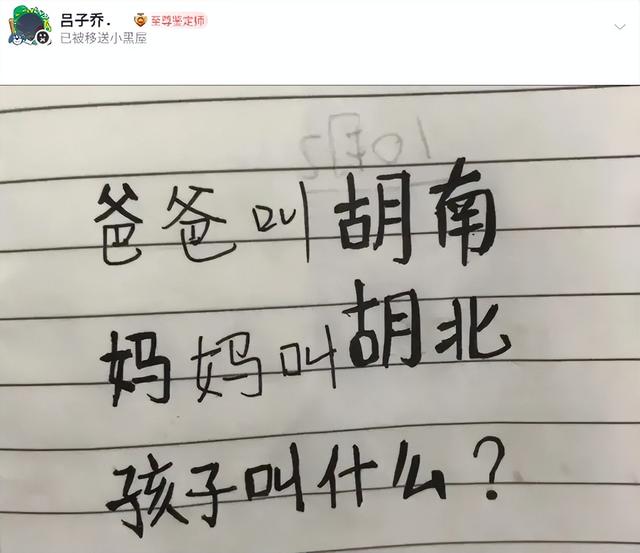 吕子乔. 至尊鉴定师
已被移送小黑屋
爸爸叫胡南
妈妈叫胡北
孩子叫什么?